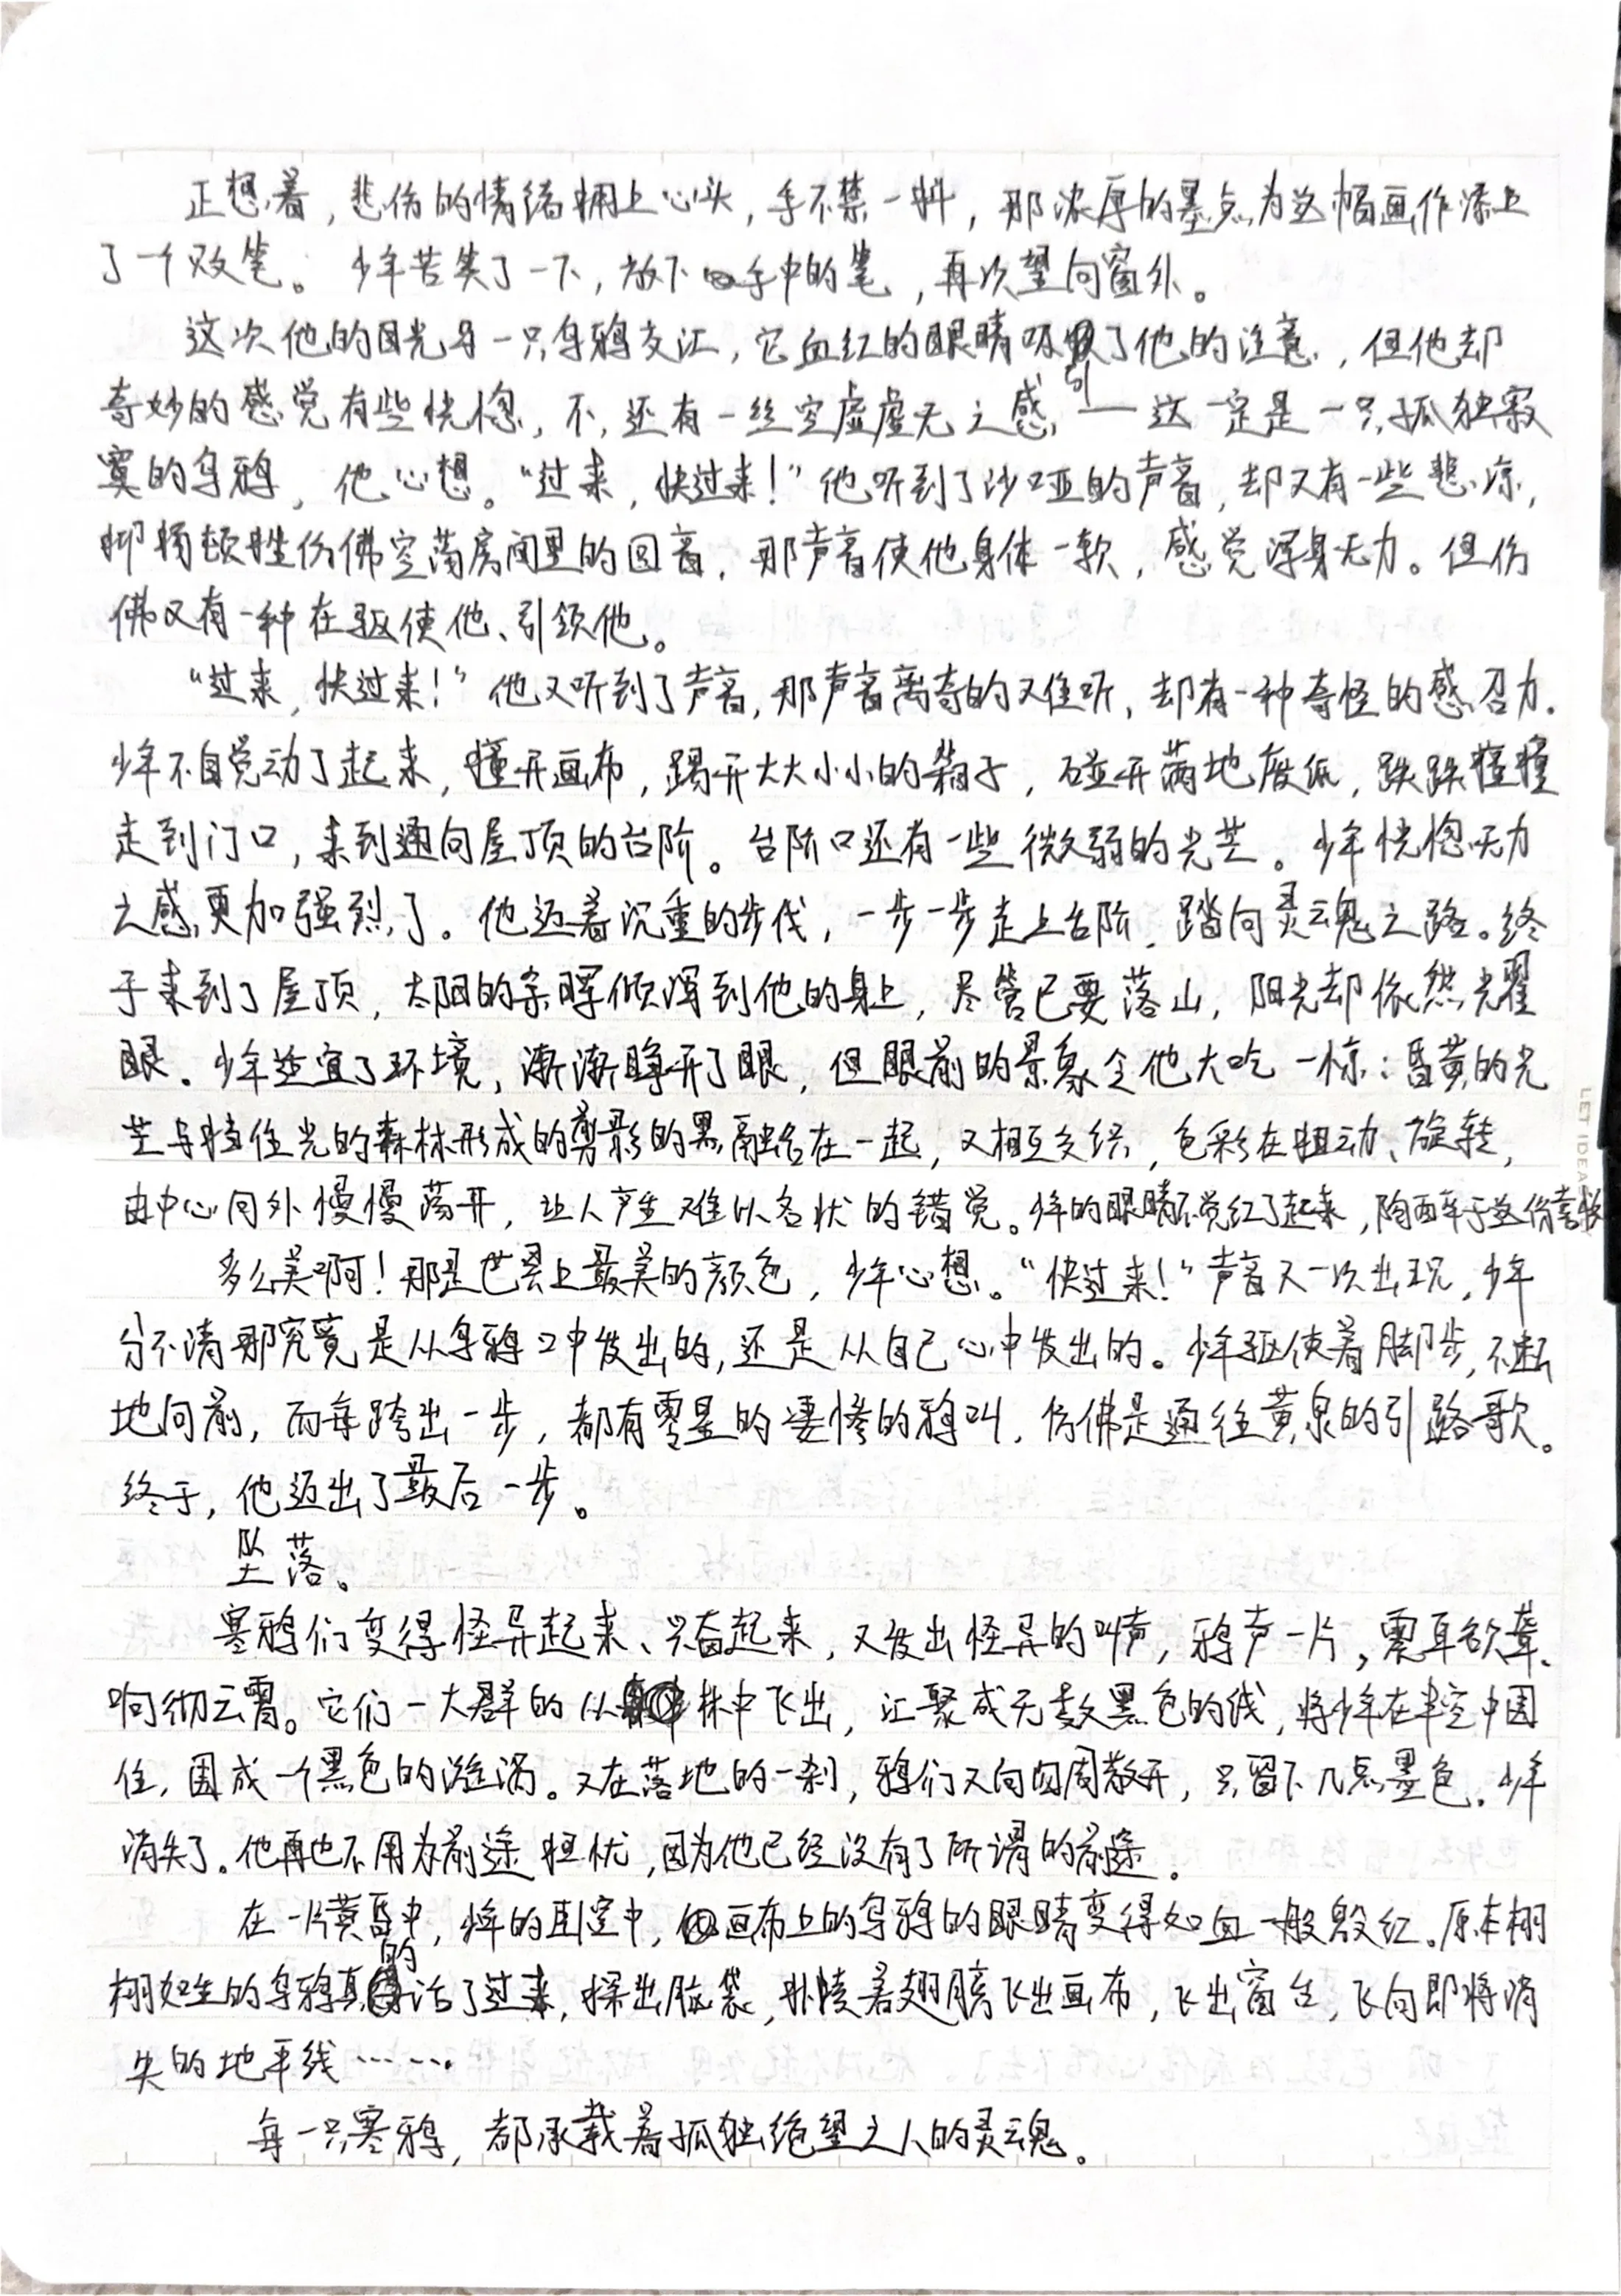 正想着，悲伤的情绪拥上心头，手不禁一抖，那浓厚的墨点为这幅画作添上
了一个败笔。少年苦笑了一下，放下手中的笔，再次望向窗外。
这次他的目光与一只乌鸦交汇，它血红的眼睛吸引了他的注意，但他却
奇妙的感觉有些恍惚，不，还有一丝空虚虚无之感——这一定是一只孤独寂
寞的乌鸦，他心想。“过来，快过来！”他听到了沙哑的声音，却又有一些悲凉，
抑扬顿挫仿佛空荡房间里的回音，那声音使他身体一软，感觉浑身无力。但仿
佛又有一种在驱使他、引领他。
“过来，快过来！”他又听到了声音，那声音离奇的又难听，却有一种奇怪的感召力。
少年不自觉动了起来，撞开画布，踢开大大小小的箱子，碰开满地废纸，跌跌撞撞
走到门口，来到通向屋顶的台阶。台阶口还有一些微弱的光芒。少年恍惚无力
之感更加强烈了。他迈着沉重的步伐，一步一步走上台阶，踏向灵魂之路。终
于来到了屋顶，太阳的余晖倾泻到他的身上，尽管已要落山，阳光却依然光耀
眼。少年适宜了环境，渐渐睁开了眼，但眼前的景象令他大吃一惊：昏黄的光
芒与挡住光的森林形成的剪影的黑融合在一起，又相互交织，色彩在扭动、旋转，
由中心向外慢慢荡开，让人产生难以名状的错觉。少年的眼睛不觉红了起来，陶醉于这份喜悦
多么美啊！那是世界上最美的颜色，少年心想。“快过来！”声音又一次出现，少年
分不清那究竟是从乌鸦口中发出的，还是从自己心中发出的。少年驱使着脚步，不断
地向前，而每跨出一步，都有零星的凄惨的鸦叫，仿佛是通往黄泉的引路歌。
终于，他迈出了最后一步。
坠落。
寒鸦们变得怪异起来、兴奋起来，又发出怪异的叫声，鸦声一片，震耳欲聋、
响彻云霄。它们一大群的从林中飞出，汇聚成无数黑色的线，将少年在半空中围
住，围成一个黑色的漩涡。又在落地的一刹，鸦们又向四周散开，只留下几点墨色。少年
消失了。他再也不用为前途担忧，因为他已经没有了所谓的前途。
在一片黄昏中，少年的画室中，画布上的乌鸦的眼睛变得如血一般殷红。原本栩
栩如生的乌鸦真的活了过来，探出脑袋，扑棱着翅膀飞出画布，飞出窗台，飞向即将消
失的地平线……
每一只寒鸦，都承载着孤独绝望之人的灵魂。
LET IDEA